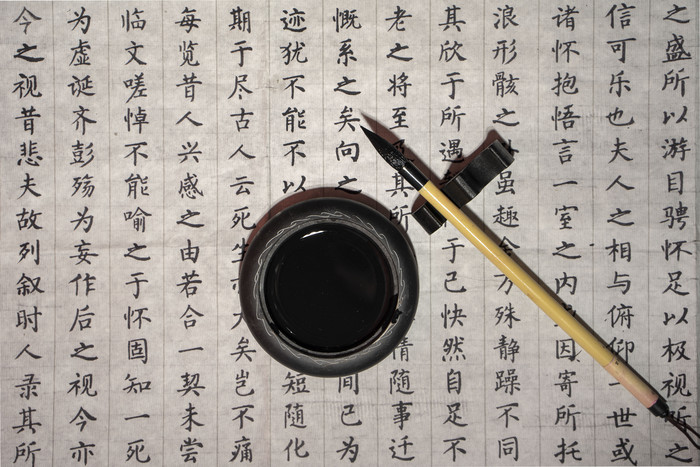 之盛所以游目骋怀足以极视之
信可乐也夫人之相与俯仰一世或
诸怀抱悟言一室之内因寄所托
浪形骸之虽趣舍万殊静躁不同
其欣于所遇于己快然自足不
老之将至及其所情随事迁
慨系之矣向之间已为
迹犹不能不以短随化
期于尽古人云死生亦大矣岂不痛
每览昔人兴感之由若合一契未尝
临文嗟悼不能喻之于怀固知一死
为虚诞齐彭殇为妄作后之视今亦
今之视昔悲夫故列叙时人录其所